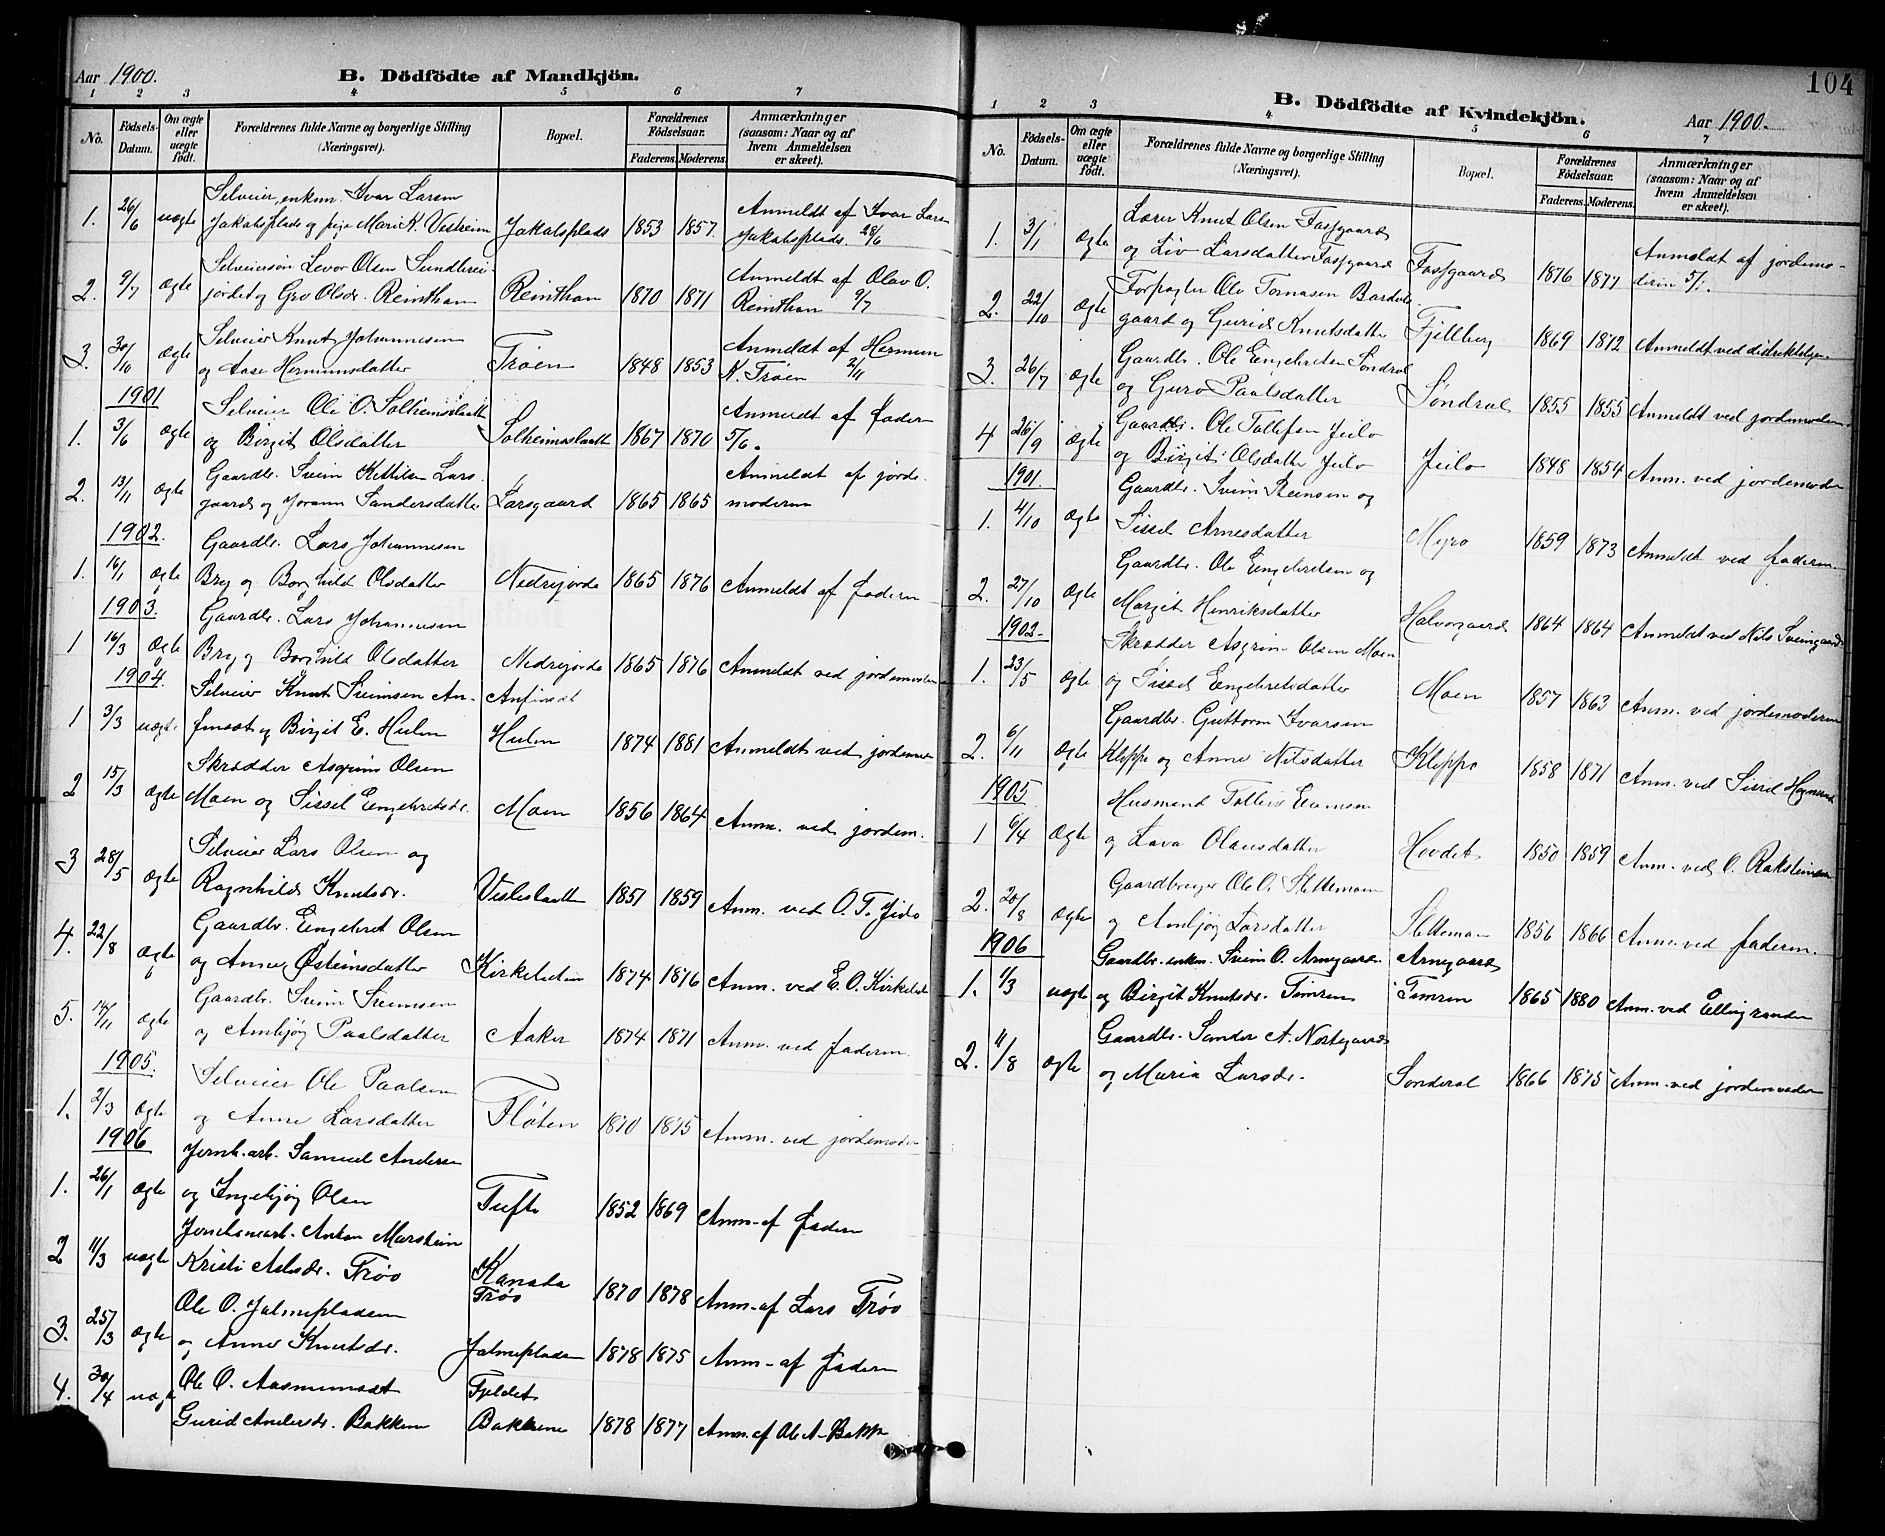 Aar 1900.
B. Dödfödte af Mandkjön.
1 2 3 4 5 6 7
No. Födsels-Datum. Om ægte eller uægte født. Forældrenes fulde Navne og borgerlige Stilling (Næringsvei). Bopæl. Forældrenes Födselsaar. Faderens. Moderens. Anmærkninger (saasom: Naar og af hvem Anmeldelsen er skeet).
Selveier, enkem. Ivar Larsen
1. 26/6 uægte Jakobsplads og pige Mari K. Vestheim Jakobsplads 1853 1857. Anmeldt af Ivar Larsen Jakobsplads 28/6
Selveiersøn Levor Olsen Sundbrei-
2. 9/7 Ægte jordet og Gro Olsdr. Reinthan Reinthan 1870 1871 Anmeldt af Olav O. Reinthan 9/7
Selveier Knut Johannesen
3. 30/10 Ægte og Aase Hermundsdatter Trøen 1848 1853 Anmeldt af Hermun K. Trøen 2/11
1901
Selveier Ole O. Solheimsslaatte
1. 3/6 Ægte og Birgit Olsdatter Solheimsslaatte 1867 1870 Anmeldt af faderen 5/6.
Gaardbr. Svein Kittilsen Lars-
2. 13/11 Ægte gaard og Jorann Sandersdatter Larsgaard 1865 1865 Anmeldt af jordemoderen
1902.
Gaardbr. Lars Johannesen
1. 16/1 Ægte Bry og Borghild Olsdatter Nedrejorde 1865 1876 Anmeldt af faderen
1903.
Gaardbr. Lars Johannesen
1 16/3 Ægte Bry og Borghild Olsdatter Nedrejorde 1865 1876 Anmeldt ved jordemoderen
1904.
Selveier Knut Sveinsen An- Anfinset
1 3/3 uægte finset og Birgit E. Hulm Hulm 1874 1881 Anmeldt ved jordemor
Skrædder Asgrim Olsen
2 15/3 Ægte Moen og Sissel Engebretsdr. Moen 1856 1864 Anm. ved jordem.
Selveier Lars Olsen og
3 28/5 Ægte Ragnhild Knutsdr. Visleslaatten 1851 1859 Anm. ved O. T. Jeilo
Gaardbr. Engebret Olsen
4. 22/8 Ægte og Anne Østeinsdatter Kirkebøen 1874 1876 Anm. ved E. O. Kirkebøen
Gaardbr. Svein Sveinsen
5. 14/11 Ægte og Ambjøg Paalsdatter Aaker 1874 1871 Anm. ved faderen.
1905.
Selveier Ole Paalsen
1. 2/3 Ægte og Anne Larsdatter Fløten 1870 1875 Anm. ved jordemoder
1906
Jernb. arb. Samuel Andersen
1. 26/1 Ægte og Ingebjøg Olsen Tufte 1852 1869 Anm. af faderen
Jernbanearb. Anton Marsheim
2 11/3 uægte Kristi Aslesdr. Trøo Kanada Trøo 1870 1878 Anm. af Lars Trøo
Ole O. Jalmepladsen
3. 25/3 Ægte og Anne Knutsdr. Jalmepladsen 1878 1875 Anm. af faderen
Ole O. Aasmundset Fjeldet
4. 30/4 uægte Gurid Andersdr. Bakken Bakkene 1878 1877 Anm. af Ole A. Bakke
104
B. Dödfödte af Kvindekjön.
Aar 1900.
1 2 3 4 5 6 7
No. Födsels-Datum. Om ægte eller uægte födt. Forældrenes fulde Navne og borgerlige Stilling (Næringsvei). Bopæl. Forældrenes Födselsaar. Faderens. Moderens. Anmærkninger (saasom: Naar og af hvem Anmeldelsen er skeet).
Lærer Knut Olsen Fossgaard
1. 3/1 Ægte og Liv Larsdatter Fossgaard Fossgaard 1876 1877 Anmeldt af jordemoderen 5/1.
Forpagter Ole Tomasen Bardøla-
2. 22/10 Ægte gaard og Gurid Knutsdatter Fjellberg 1869 1872 Anmeldt ved distriktslægen.
Gaardbr. Ole Engebretsen Söndral
3. 26/7 Ægte og Guro Paalsdatter Söndral 1855 1855 Anmeldt ved jordemoderen
Gaardbr. Ole Tollefsen Jeilo
4 26/9 Ægte og Birgit Olsdatter Jeilo Jeilo 1848 1854 Anm. ved jordemoder
1901
Gaardbr. Svein Steinsen og
1. 4/10 Ægte Sissel Arnesdatter Myro 1859 1873 Anmeldt ved faderen.
Gaardbr. Ole Engebretsen og
2. 27/10 Ægte Margit Henriksdatter Halvorgaard 1864 1864 Anmeldt ved Nils Sveingaard
1902.
Skrædder Asgrim Olsen Moen
1. 23/5 Ægte og Sissel Engebretsdatter Moen 1857 1863 Anm. ved jordemoderen
Gaardbr. Guttorm Ivarsen
2. 6/11 Ægte Kleppe og Anne Nilsdatter Kleppe 1858 1871 Anm. ved Sissel
1905
Husmand Tollev Evensen
1 6/4 Ægte og Lava Olausdatter Hovdet 1850 1859 Anm. ved O. Raksteinsen
Gaardbruger Ole O. Slettemoen
2. 20/8 Ægte og Ambjøg Larsdatter Slettemoen 1856 1866 Anm. ved faderen.
1906
Gaardbr. enkem. Svein O. Arnegaard. Arnegaard
1. 1/3 uægte og Birgit Knutsdr. Timren Timren 1865 1880 Anm. ved Elling randen
Gaardbr. Sander A. Nortegaard
2. 11/8 Ægte og Maria Larsdr. Sönderal 1866 1875 Anm. ved jordemoder